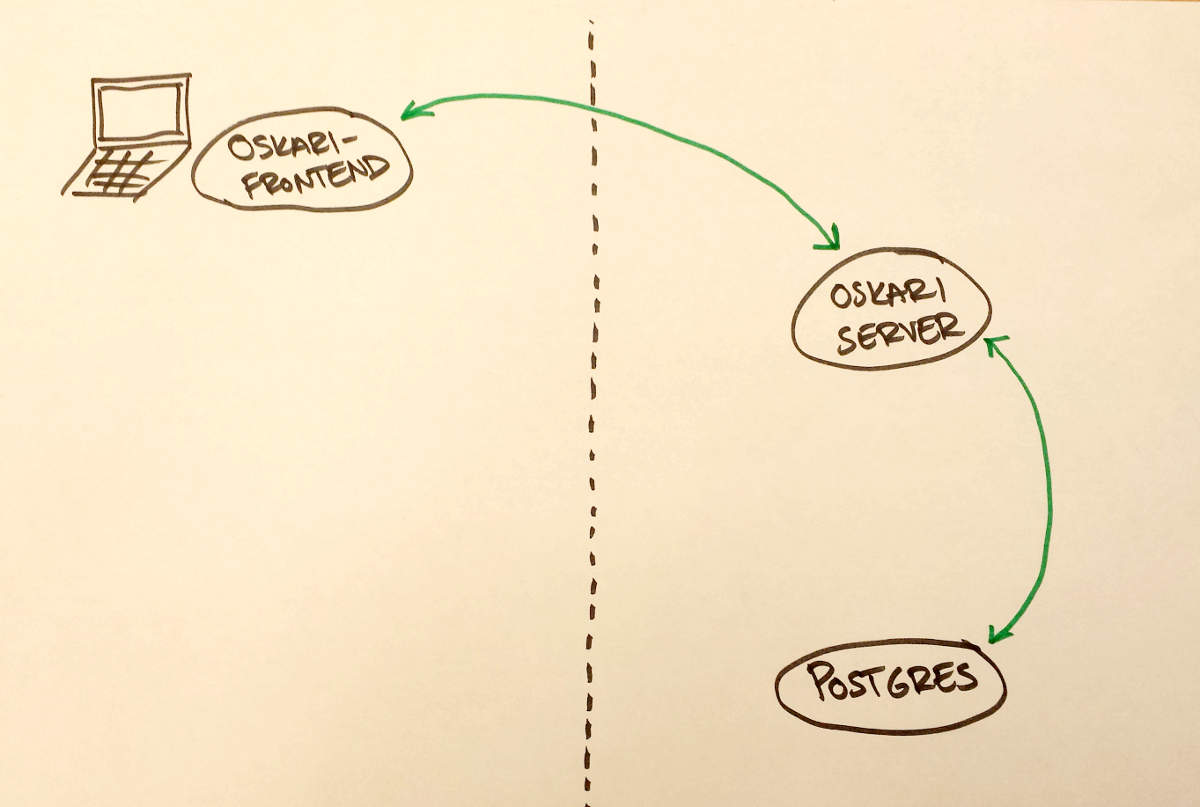 OSKARI-
FRONTEND
OSKARI
SERVER
POSTGRES